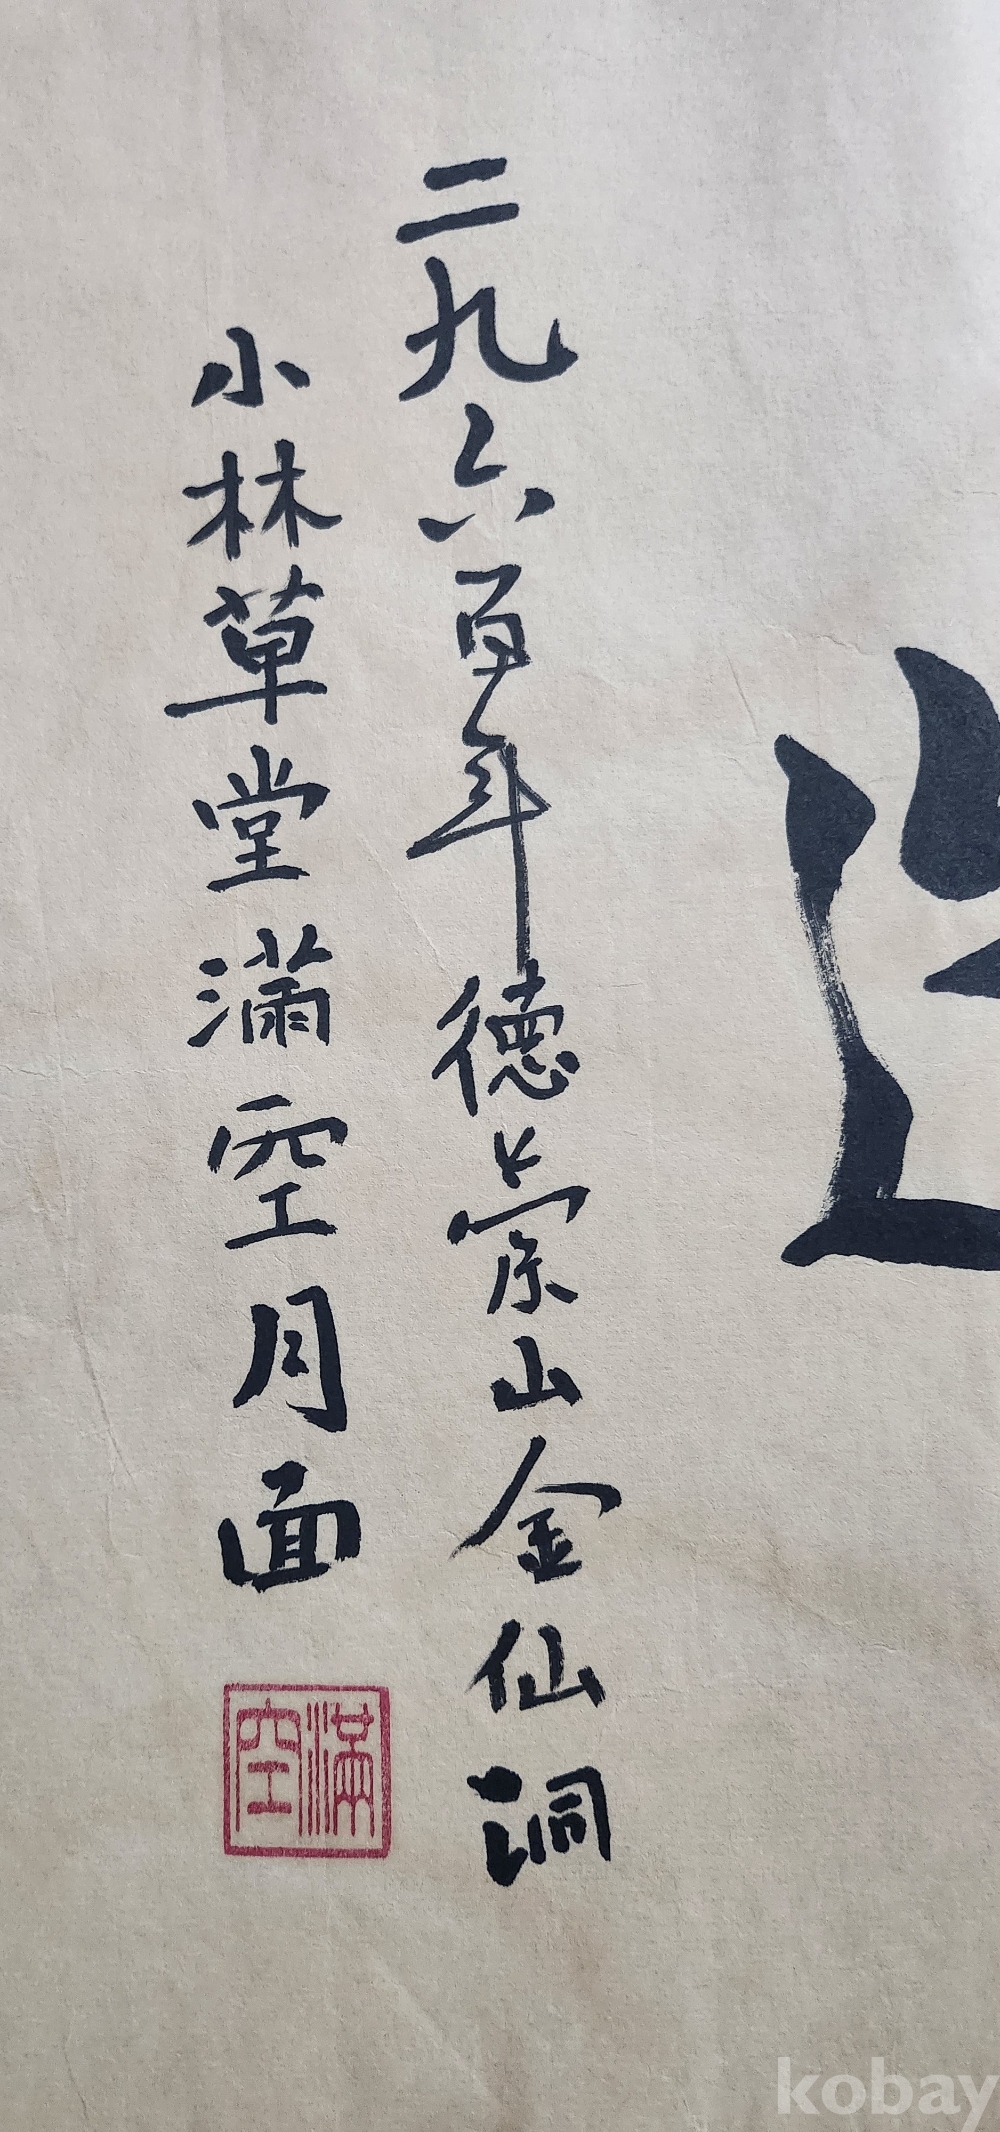 二九六百年德崇山金仙洞
小林草堂滿空月面
滿空
kobay